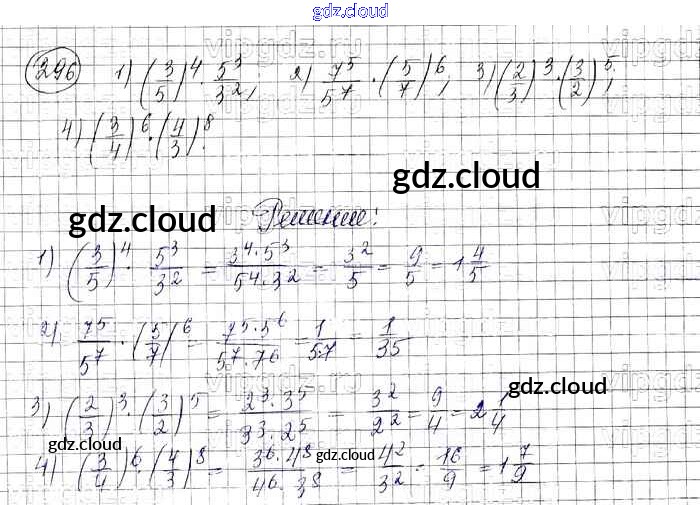 gdz.cloud
vipgdz.ru
296 1) (3/5)^4 · 5^3/3^2, 2) 7^5/5^7 · (5/7)^6; 3) (2/3)^3 · (3/2)^5;
4) (3/4)^6 · (4/3)^8.
gdz.cloud
gdz.cloud
Решение:
1) (3/5)^4 · 5^3/3^2 = 3^4·5^3/5^4·3^2 = 3^2/5 = 9/5 = 1 4/5
2) 7^5/5^7 · (5/7)^6 = 7^5·5^6/5^7·7^6 = 1/5·7 = 1/35
3) (2/3)^3 · (3/2)^5 = 2^3·3^5/3^3·2^5 = 3^2/2^2 = 9/4 = 2 1/4
gdz.cloud
gdz.cloud
4) (3/4)^6 · (4/3)^8 = 3^6·4^8/4^6·3^8 = 4^2/3^2 = 16/9 = 1 7/9
gdz.cloud
gdz.cloud